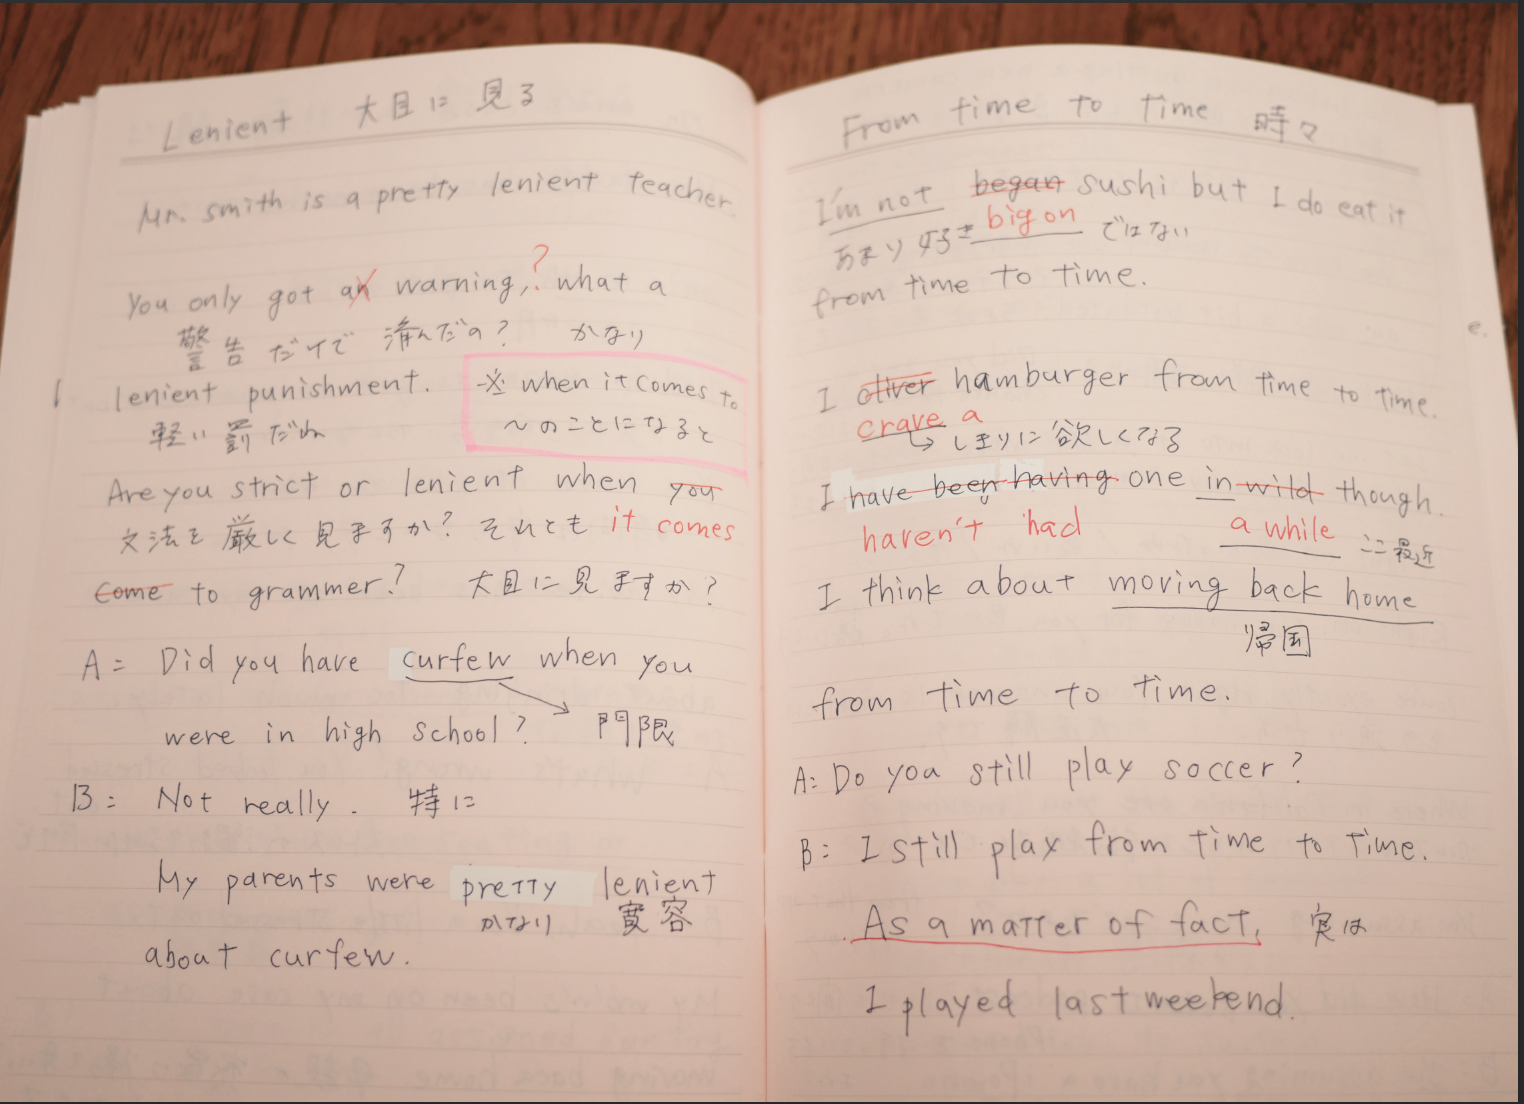 Lenient 大目に見る
Mr. smith is a pretty lenient teacher.
You only got an warning,? what a
警告だけで済んだの? かなり
lenient punishment.
軽い罰だね
※ when it comes to
〜のことになると
Are you strict or lenient when you
文法を厳しく見ますか? それとも it comes
come to grammer? 大目に見ますか?
A: Did you have curfew when you
were in high school? 門限
B: Not really. 特に
My parents were pretty lenient
かなり 寛容
about curfew.
From time to time 時々
I'm not began sushi but I do eat it
あまり好き big on ではない
from time to time.
I oliver hamburger from time to time.
crave a
しきりに欲しくなる
I have been having one in wild though.
haven't had a while ここ最近
I think about moving back home
帰国
from time to time.
A: Do you still play soccer?
B: I still play from time to time.
As a matter of fact, 実は
I played last weekend.
e.